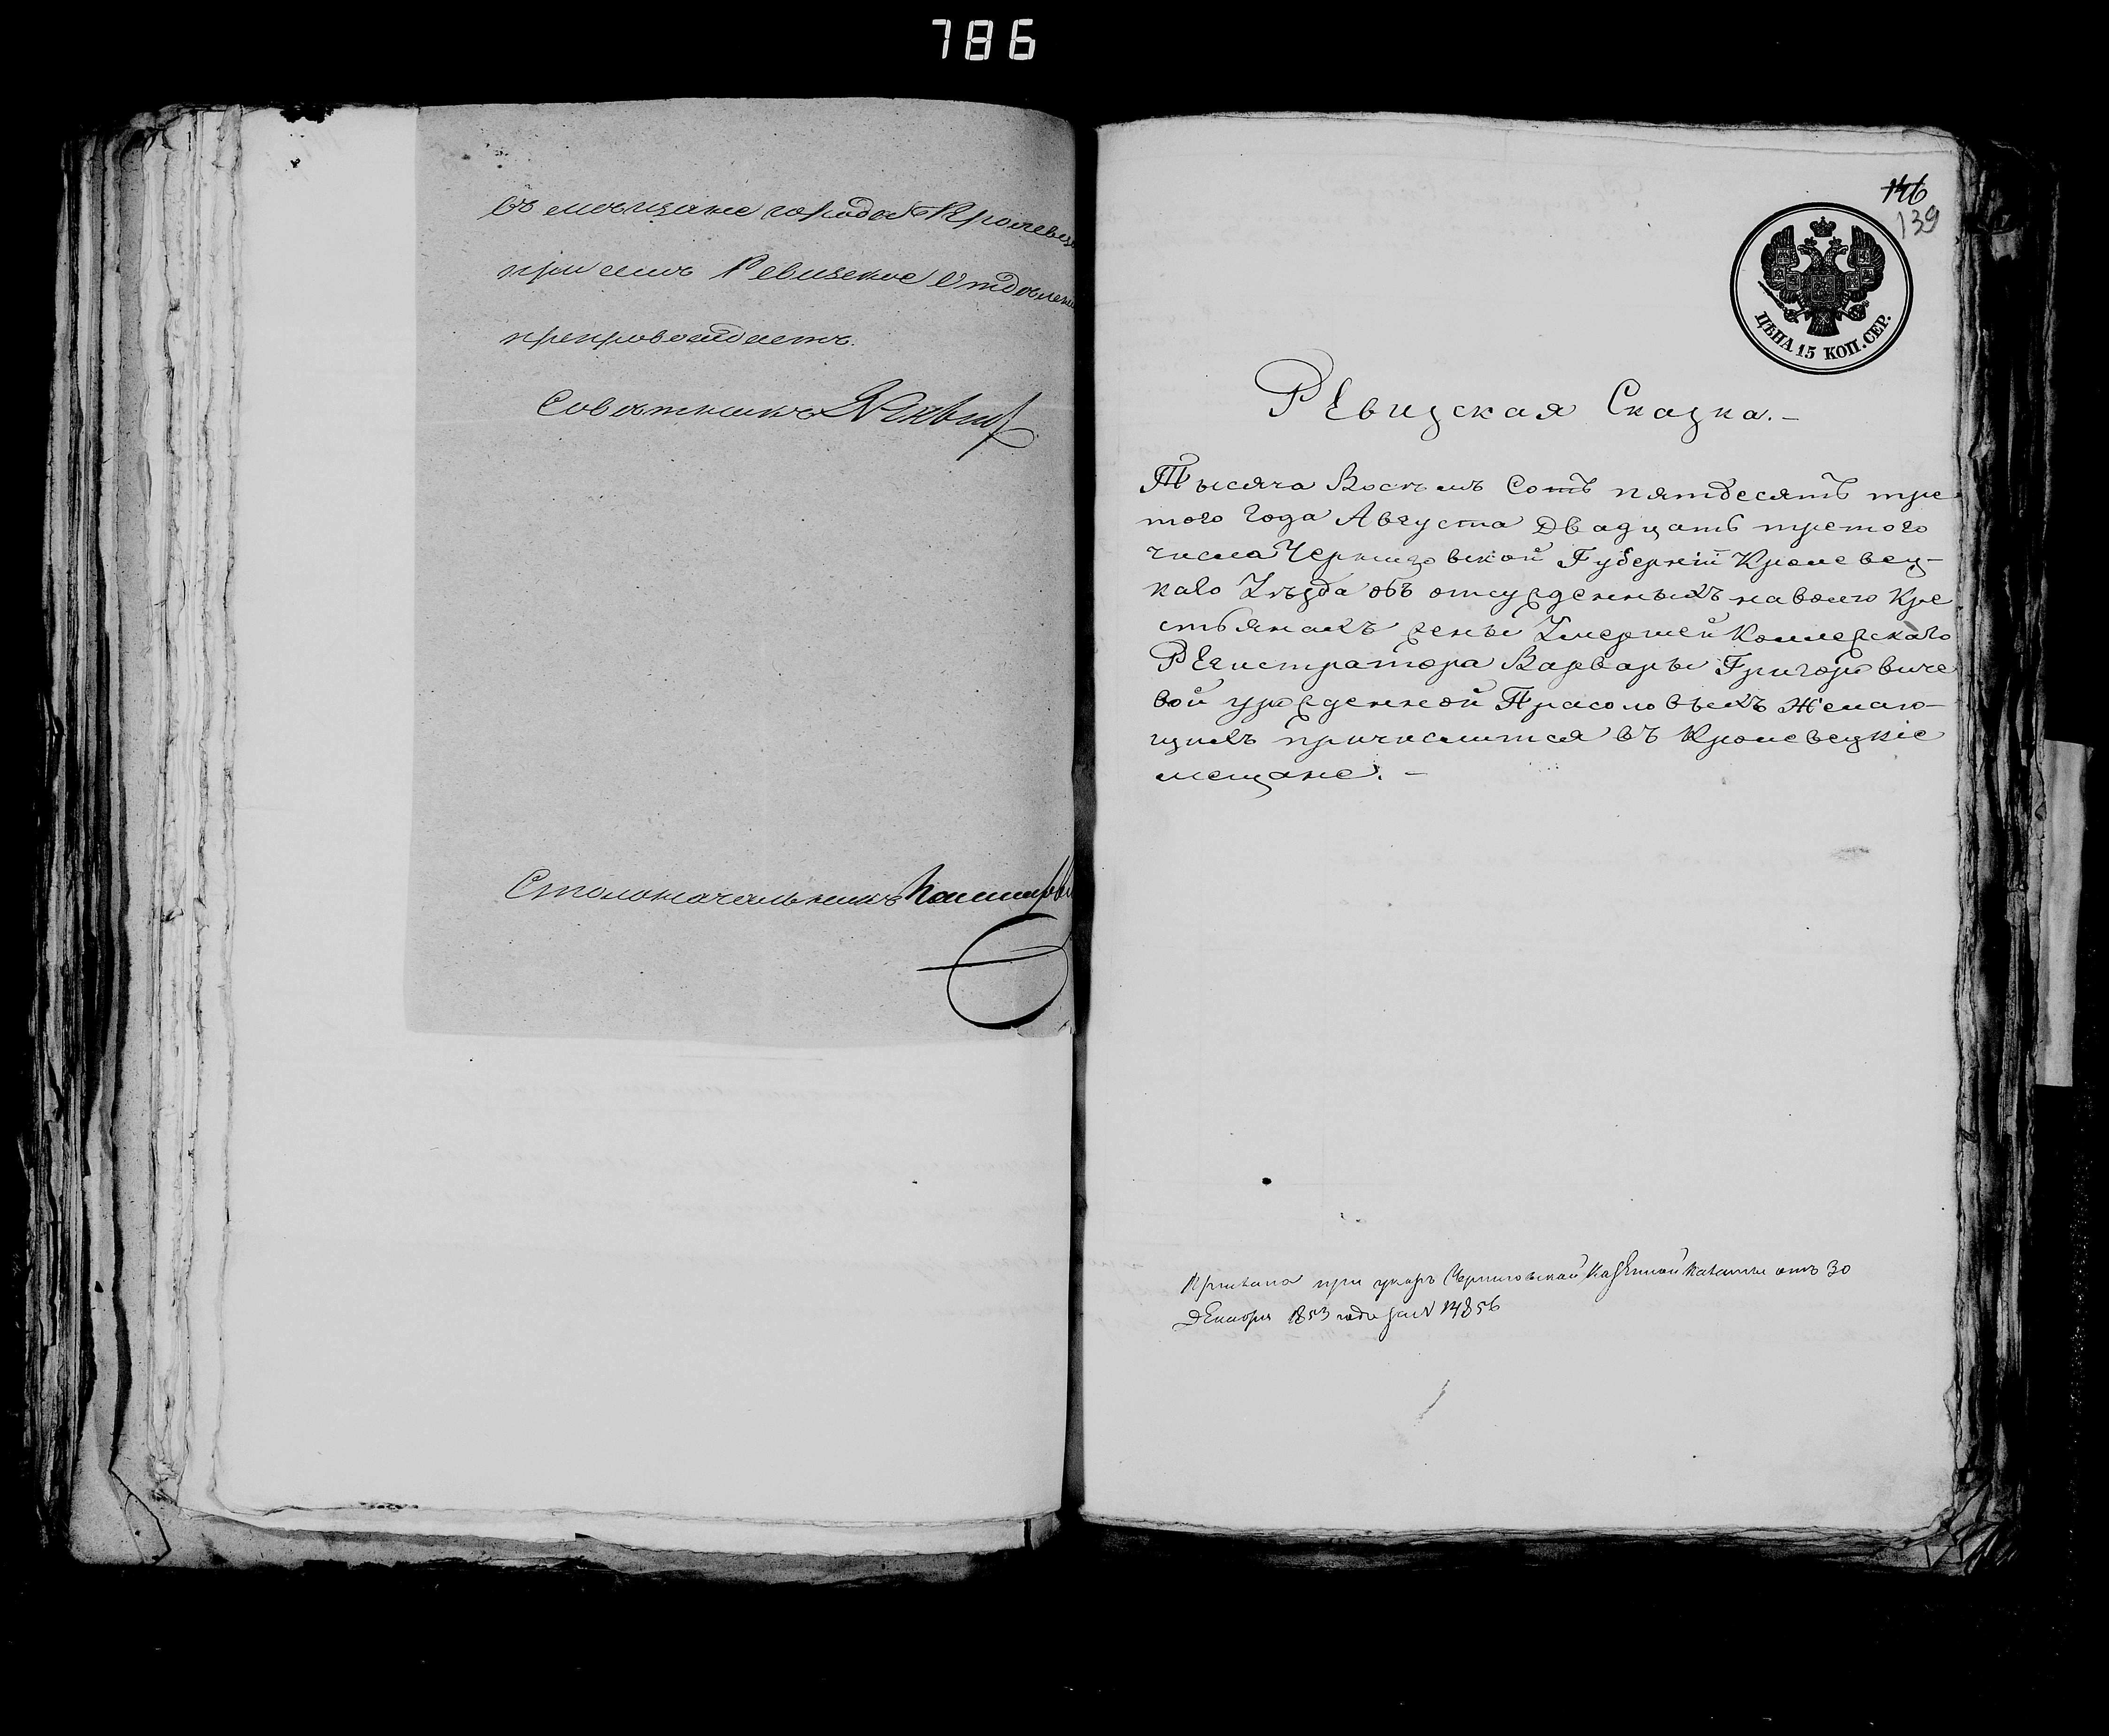 786
въ мѣщане города Кролевца
при семъ Ревизское Отдѣлени
препровождаетъ.
Совѣтникъ
Столоначальникъ
146
139
ЦѢНА 15 КОП. СЕР.
РЕвизская Сказка.—
Тысяча Восѣмъ Сотъ пятдесятъ тре
того Года Августа Двадцать третого
числа Черниговской Губерніи Кролевец—
каго Уѣзда объ отсужденныхъ на волю Кре
стьянахъ жены Умершей Коллежскаго
РЕгистратора Варвары Григоровиче
вой урожденной Прасоловыхъ Желаю—
щихъ причислится въ Кролевецкіе
мещане. —
Прислана при указѣ Черниговской КазЕнной палаты отъ 30
ДЕкабря 1853 года за N 14856